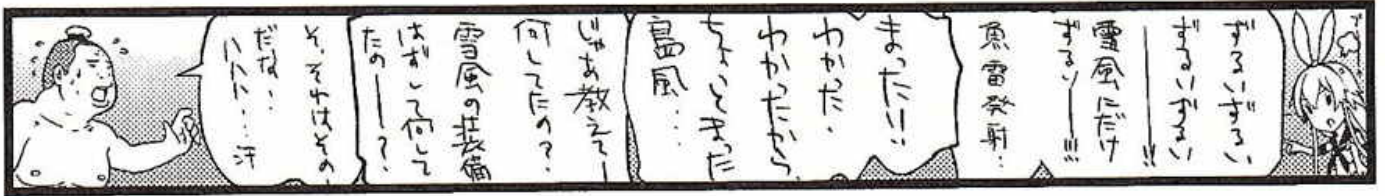 ずるいずるい
ずるいずるい
――――!!
雪風にだけ
ずるいー――!!!
魚雷発射…
まった!!
わかった、
わかったから、
ちょいとまった
島風…
じゃあ教えてー
何してたの?
雪風の装備
はずして何して
たの――?
そ、それはその、
だな、、
ハハハ…汗